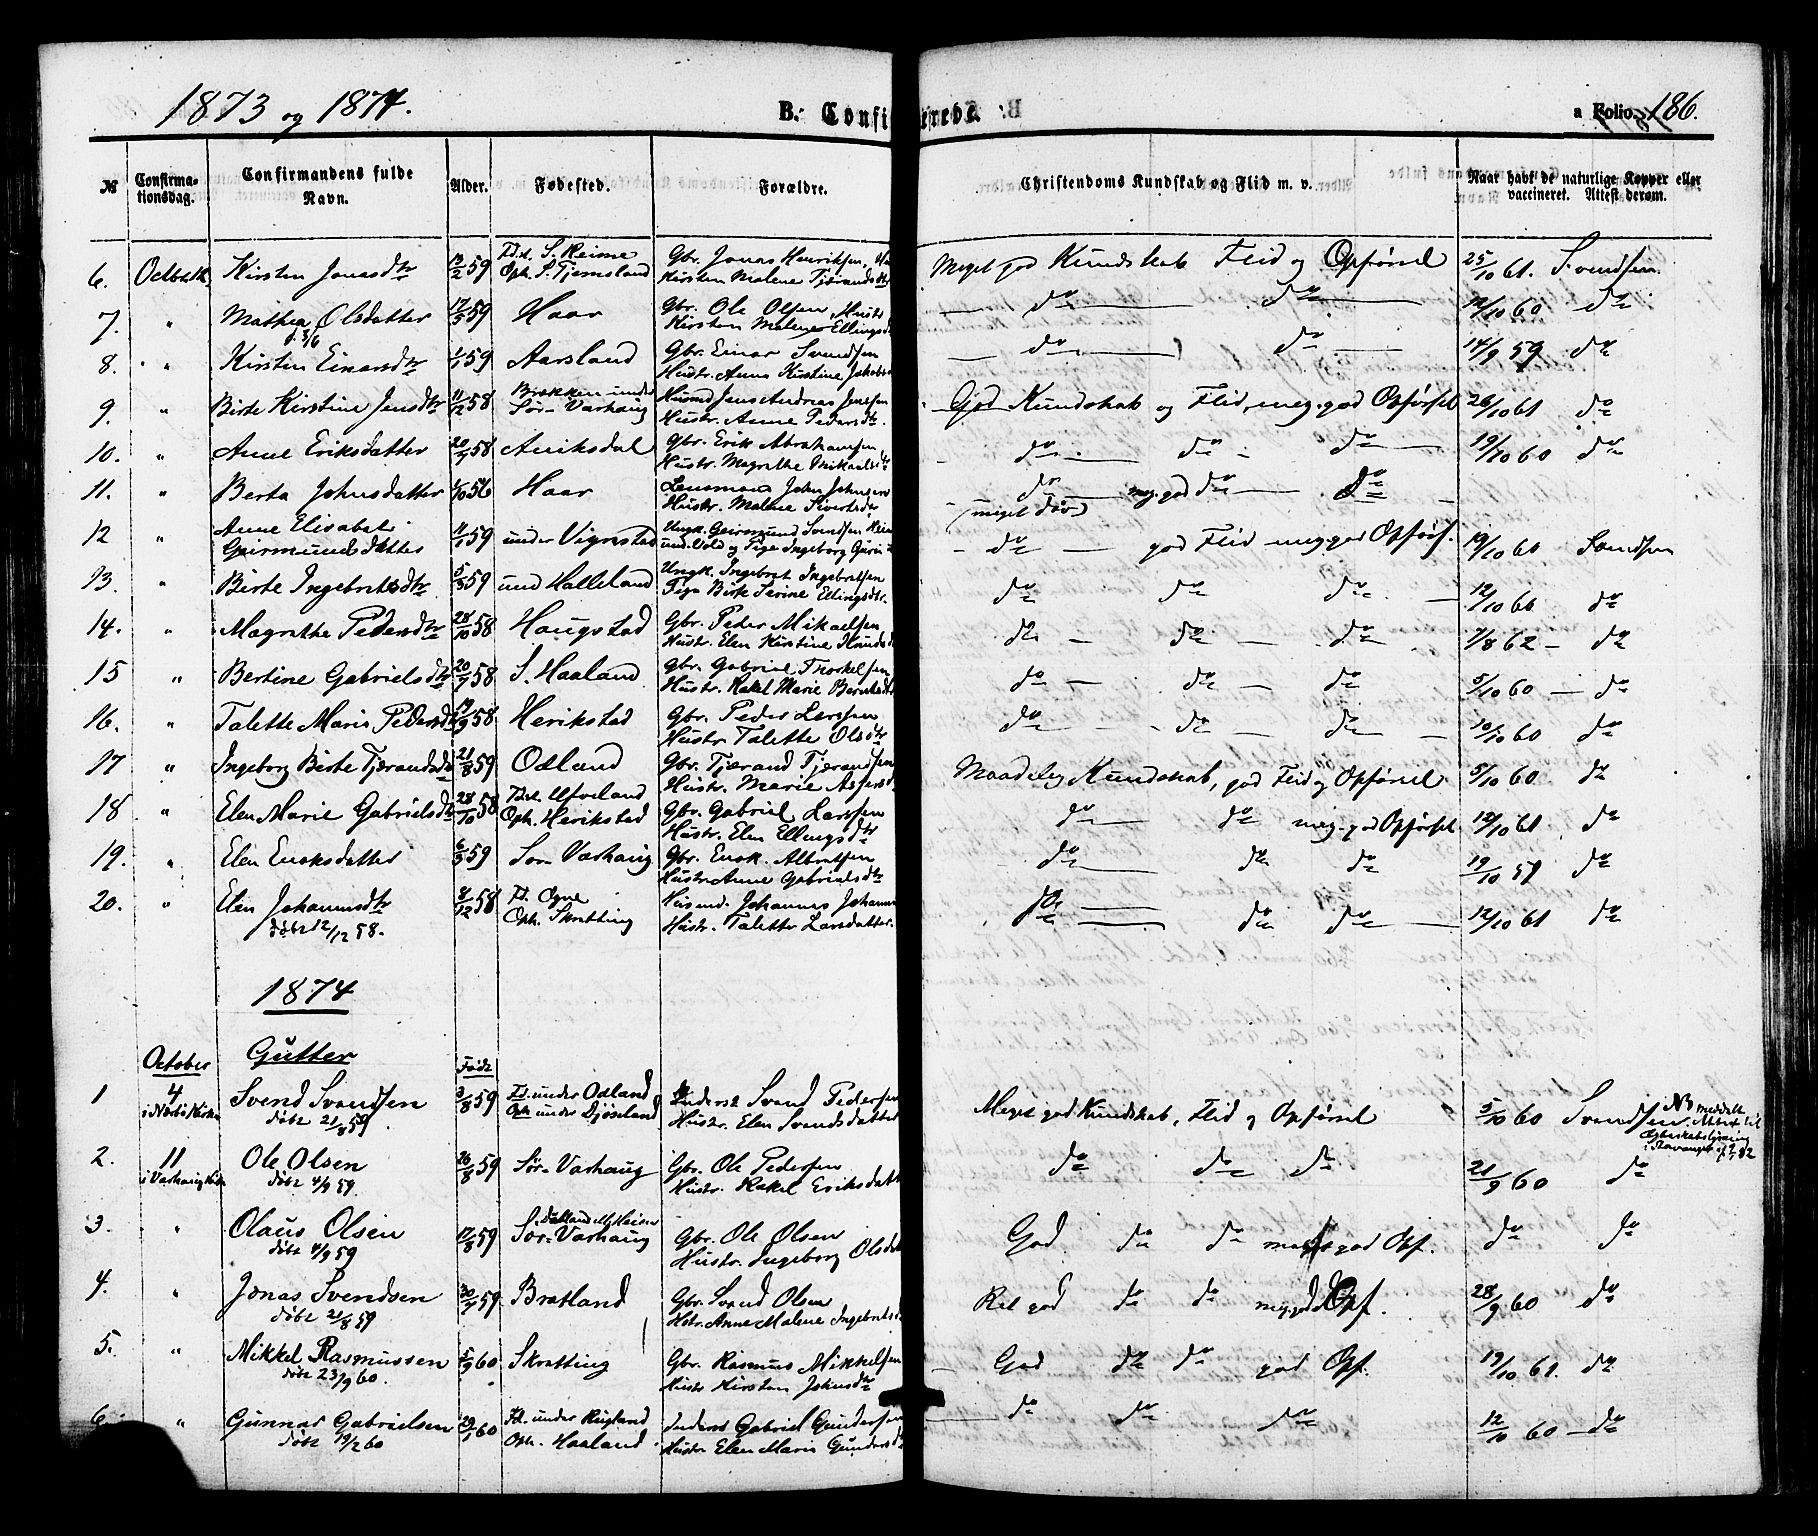 1873 og 1874.
B. Confirmerede.
a Folio. 186.
№ Confirmationsdag. Confirmandens fulde Navn. Alder. Fødested. Forældre. Christendoms Kundskab og Flid m. v. Naar havt de naturlige Kopper eller vaccineret. Attest derom.
6. Kirsten Jonasdtr 59 Fdt. S. Reime Gbr. Jonas Henriksen, Meget god Kundskab Flid og Opførsel 25/10 61. Svendsen
Oph. S. Tjemsland Kirsten Malene Tjørandsdtr
7. " Mathea Olsdatter 17/5 59 Haar Gbr. Ole Olsen, Hustr do do 12/10 60 do
Kirsten Malene Ellingsd
8. " Kirsten Einarsdtr 1/1 59 Aarsland Gbr. Einar Svendsen do do 14/9 59 do
Hustr. Anna Kirstine Jakobs
9. " Birte Kirstine Jensdtr 11/12 58 Brekken under Husmd Jens Andreas Jensen God Kundskab og Flid, meg. god Opførsel 26/10 61 do
Sør-Varhaug Hustr. Anne Pedersdtr.
10. " Anne Eriksdatter 20/7 58 Aniksdal Gbr. Erik Abrahamsen do do do 19/10 60 do
Hustr. Magrethe Mikaelsdtr
11. " Berta Johnsdatter 1/10 56 Haar Lensmand John Johnsen do meg. god do do
Hustr. Malene Sivertsdr (meget døv)
12 " Anne Elisabet 11/1 59 under Vignestad Ungk. Geirmund Svendsen do god Flid meg god Opførs. 19/10 60 Svendsen
Geirmundsdatter und. Vold og Pige Ingeborg
13. " Birte Ingebretsdtr. 5/3 59 und Halleland Ungk. Ingebret Ingebretsen do do do 12/10 60 do
Pige Birte Serine Ellingsdtr.
14. " Magrethe Pedersdtr 28/10 58 Haugstad Gbr. Peder Mikaelsen do do do 7/8 62 do
Hustr. Elen Kirstine Knudsd
15 " Bertine Gabrielsdtr 20/7 58 S. Haaland Gbr. Gabriel Thorkelsen do do do 5/10 60 do
Hustr. Rakel Marie
16. " Talette Marie Pedersdtr 19/9 58 Herikstad Gbr. Peder Larssen do do do 10/10 60 do
Hustr Talette Olsdtr
17 " Ingeborg Birte Tjærandsdtr 21/8 59 Ødland Gbr. Tjærand Tjærandsen Maadelig Kundskab, god Flid og Opførsel 5/10 60 do
Hustr. Marie
18 " Elen Marie Gabrielsdtr 28/10 58 Fdt. Ueland Gbr. Gabriel Larssen do do meg. god Opførsel 12/10 61 do
Oph. Herikstad Hustr. Elen Ellingsdtr
19. " Elen Enoksdatter 6/3 59 Sør-Varhaug Gbr. Enok Albretsen do do do 19/10 59 do
Hustr Anne Gabrielsdtr
20. " Elen Johannsdtr 8/12 58 Fd. Ogne Husmd. Johannes Johanns do do do 12/10 61 do
døbt 12/12 58. Oph. Skrætting Hustr. Talette Larsdatter.
1874
October Gutter Født
1 4 Svend Svendsen 3/8 59 Fd. under Ødland Inderst Svend Pedersen Meget god Kundskab, Flid og Opførsel 5/10 60 Svendsen. NB meddelt
i Nærbø Kirke døbt 21/8 59 Oph under Hustr. Elen Svendsdatter Attest til
2. 11 Ole Olsen 26/8 59 Sør-Varhaug Gbr. Ole Pedersen do do do 21/9 60 do
i Varhaug Kirke døbt 4/9 59. Hustr. Rakel Eriksdatt
3. " Olaus Olsen 17/8 59 Sør-Varhaug Gbr. Ole Olsen God do do meget god Opf. do do
døbt 4/9 59 Hustr. Ingeborg Olsda
4. " Jonas Svendsen 30/7 59 Bratland Gbr. Svend Olsen Ret god do do meg. god Opf. 28/9 60 do
døbt 21/8 59 Hstr. Anne Malene Ingebretsd
5. " Mikkel Rasmussen 5/9 60 Skrætting Gbr. Rasmus Mikkelsen God do do god Opf. 19/10 61. do
døbt 23/9 60. Hustr Kirsten Johnsdtr
6. " Gunnar Gabrielsen 29/1 60 Fd. under Rugland Inderst Gabriel Gundersen do do do 12/10 60 do
døbt 19/2 60 Oph. Haaland. Hustr Elen Marie Gundersd